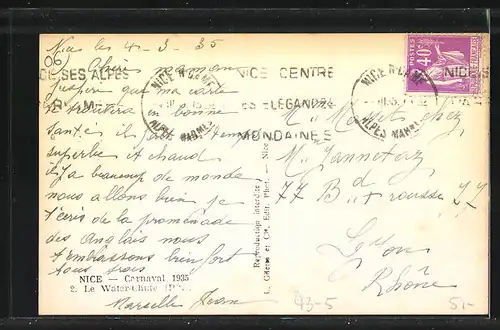 Nice les 4-3-35
06
Chère maman
j'espère que ma carte
te trouvera en bonne
santé il fait temps
superbe et chaud
il y a beaucoup de monde
nous allons bien je
t'écris de la promenade
des Anglais nous
t'embrassons bien fort
tous trois
NICE — Carnaval 1935
2. Le Water-Chute
Marcelle
SES ALPES
NICE CENTRE
DES ELEGANCES
MONDAINES
NICE
ALPES MARMES
POSTES
40c
NICE
ALPES MARMES
NICE
M. chez
M. Jannotez
77 Bd Trousse 77
Lyon
Rhône
Reproduction interdite
Edit. Phot. - Nice
43-5
51-